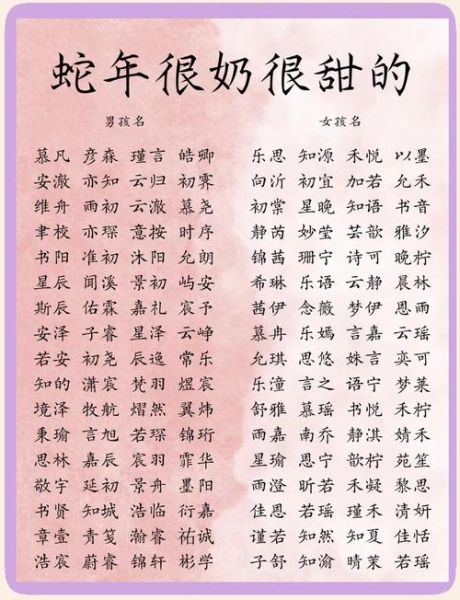 蛇年很奶很甜的
男孩名 女孩名
慕凡 彦森 瑾言 皓卿 乐思 知源 禾悦 以墨
安澈 亦知 云归 初霁 向沂 初宜 加若 允禾
维舟 雨初 云澈 慕尧 初棠 星晚 知语 书音
聿校 亦琛 意按 时序 静芮 妙莹 芸歆 雅汐
书阳 准初 沐阳 允朗 锦茜 珊宁 诗可 晚柠
星辰 闻溪 景初 屿安 希琳 乐语 云静 晨林
斯辰 佑霖 嘉礼 宸予 茜伊 念薇 梦伊 思雨
安泽 子睿 星泽 云峥 慕冉 乐嫣 言嘉 云瑶
若安 初尧 辰逸 常乐 允琪 思悠 姝言 奕可
知的 潇宸 梵羽 煜宸 乐潼 言之 语宁 梦莱
境泽 牧航 熠然 翼炜 舒雅 慕瑶 书悦 禾柠
秉瑜 言旭 若琛 锦珩 雨嘉 南乔 静淇 婧禾
思林 嘉辰 宸羽 霏华 星瑜 思宁 歆柠 苑笙
敬宇 延初 景舟 墨阳 雨澄 昕若 禾凝 黎思
书贤 知城 浩临 衍嘉 佳恩 若瑶 瑾禾 清妍
章壹 青笺 瀚睿 祐诚 谨若 知然 知夏 佳恬
浩宸 蔚睿 锦轩 彬学 子舒 知渝 晴茉 若瑶